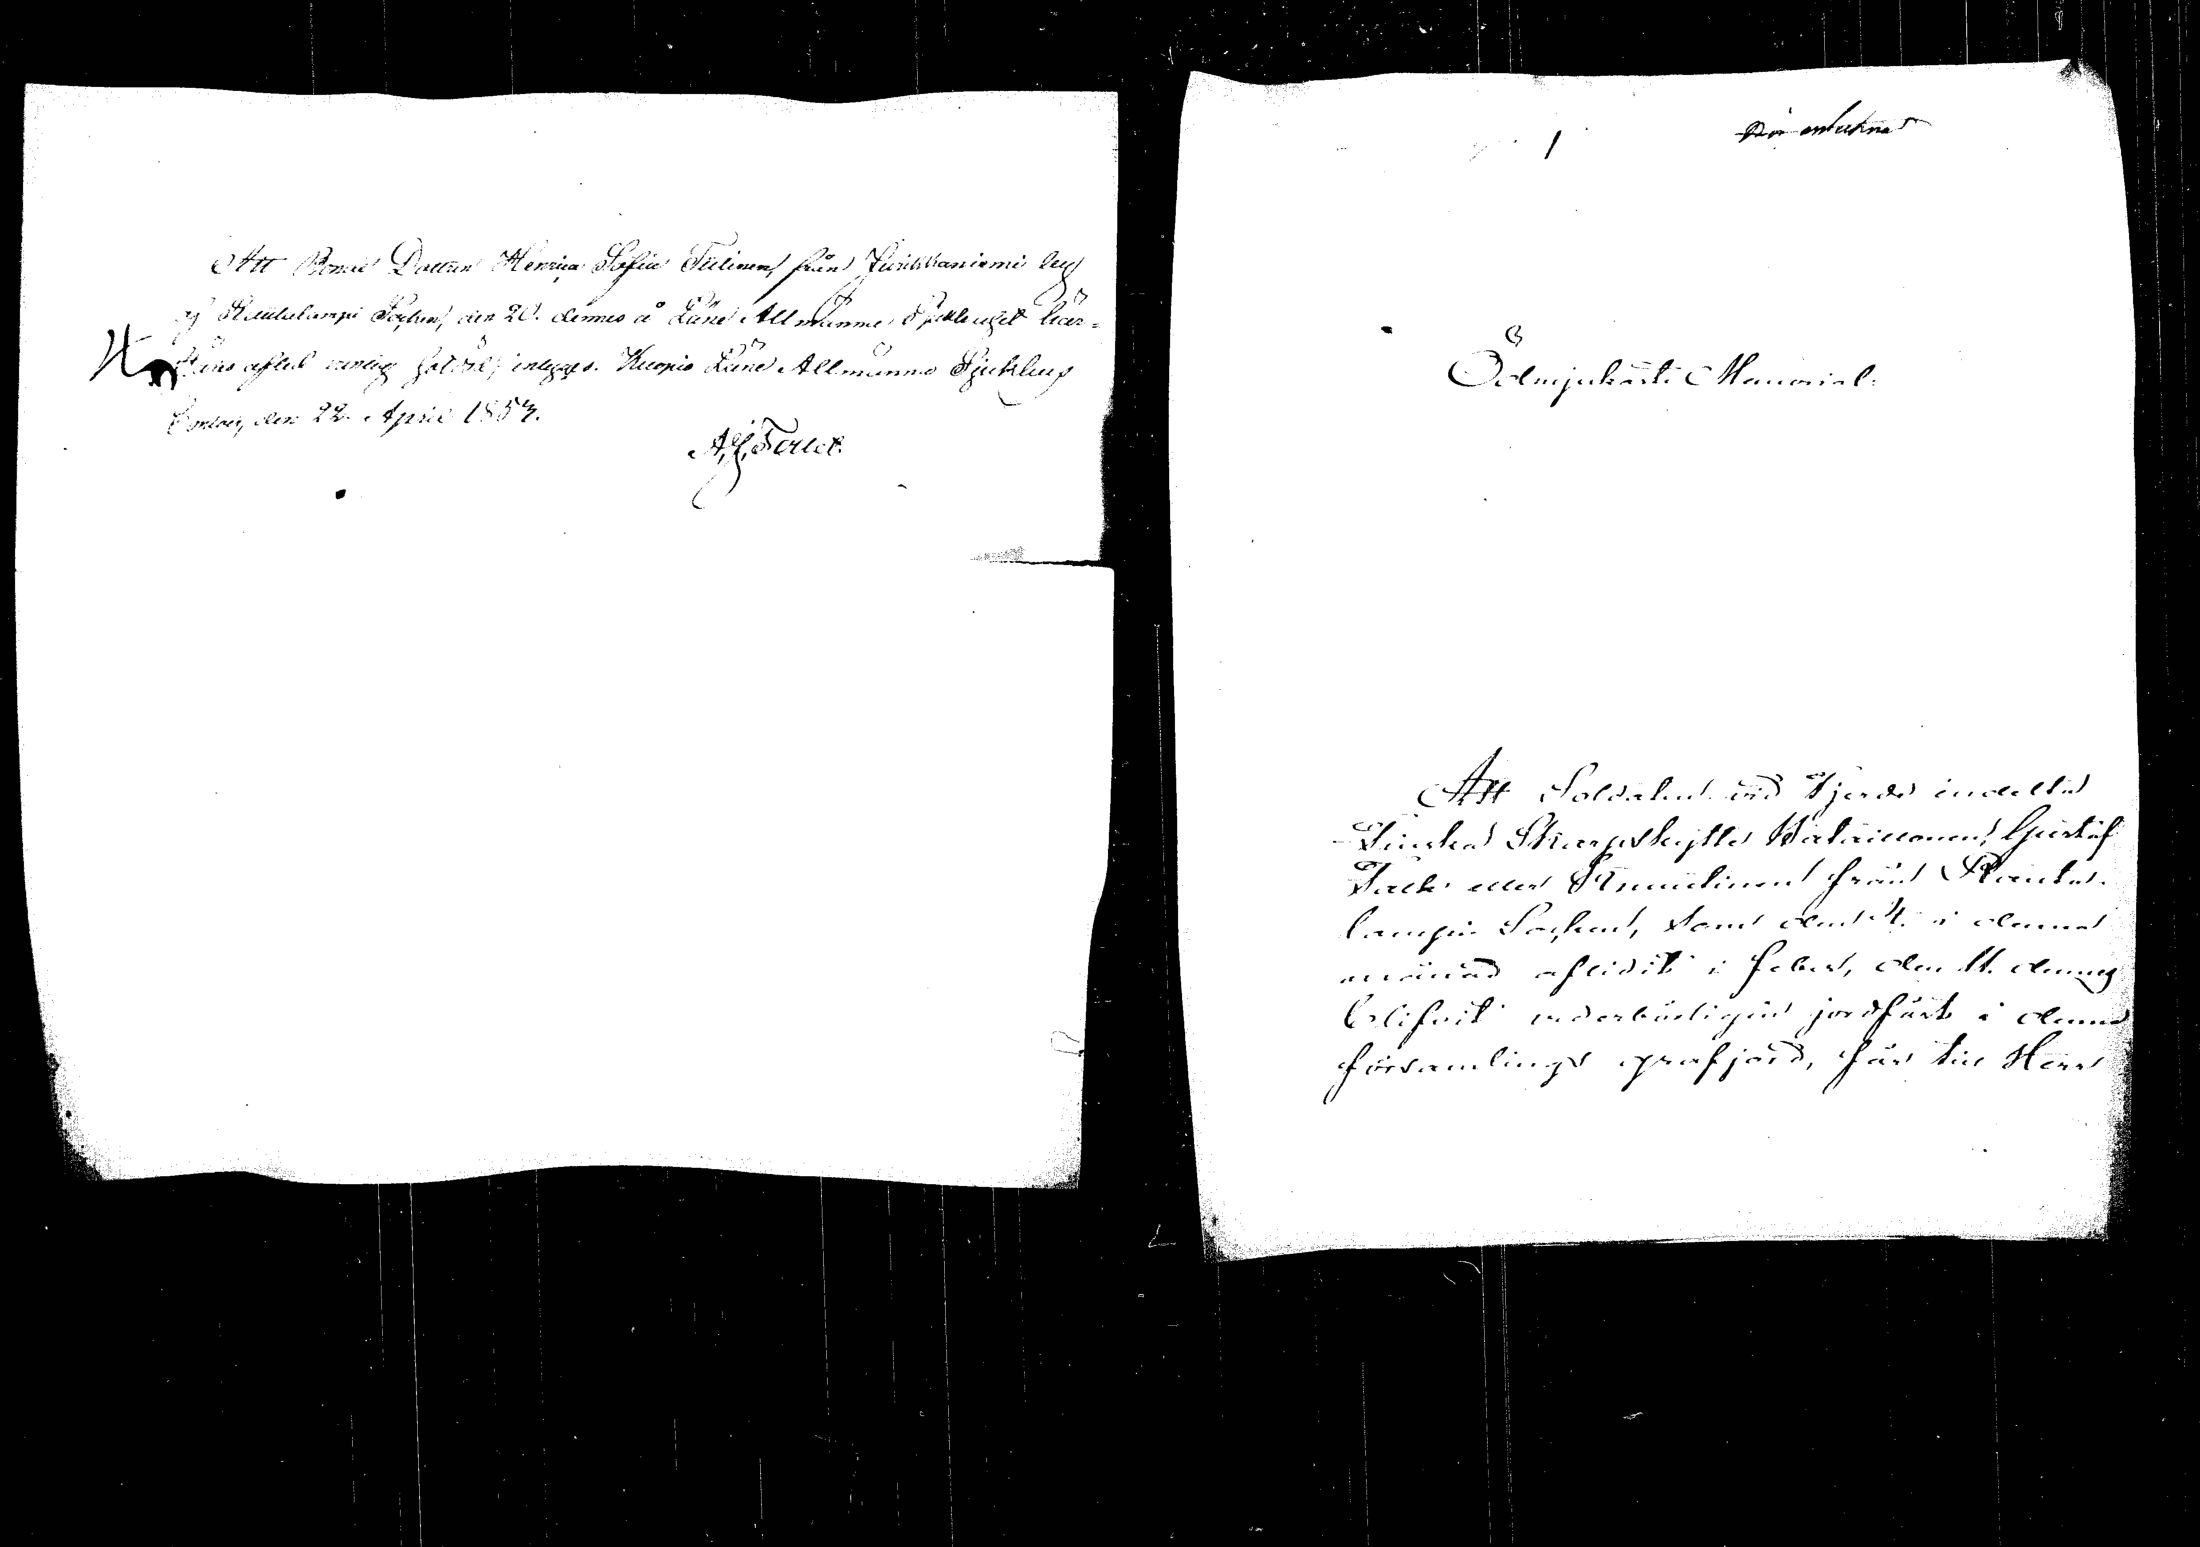 Att Bonde Dottren Henrica Sofia Tiilinen, från Jurikkaniemi by
af Rautalampi Socken, den 20. dennes å Läne Allmänna Sjukhuset här-
städes aflidit, intygas. Kuopio Läne Allmänna Sjukhus
Contor, den 22 April 1853.
Är antecknad
1
Ödmjukaste Memorial.
Att Soldaten vid Fjerde indelta
Finska Skarpskytte Bataillonen, Gustaf
Falk eller Knuutinen från Rauta-
lampi Socken, som den 4. i denna
månad aflidit i feber, den 11. dennes
blifvit vederbörligen jordfäst i denna
församlings grafjord, får till Herr